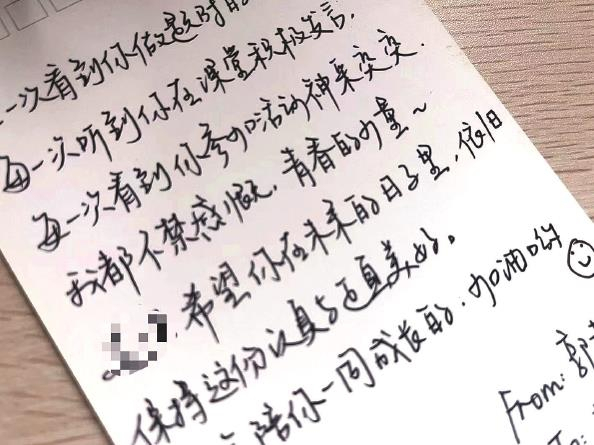 一次看到你做题时的
每一次听到你在课堂积极发言,
每一次看到你参加活动神采奕奕.
我都不禁感慨, 青春的力量~
希望你在未来的日子里, 依旧
保持这份认真与这美好。
陪你一同成长的. 加油哟
From: 郭
To: